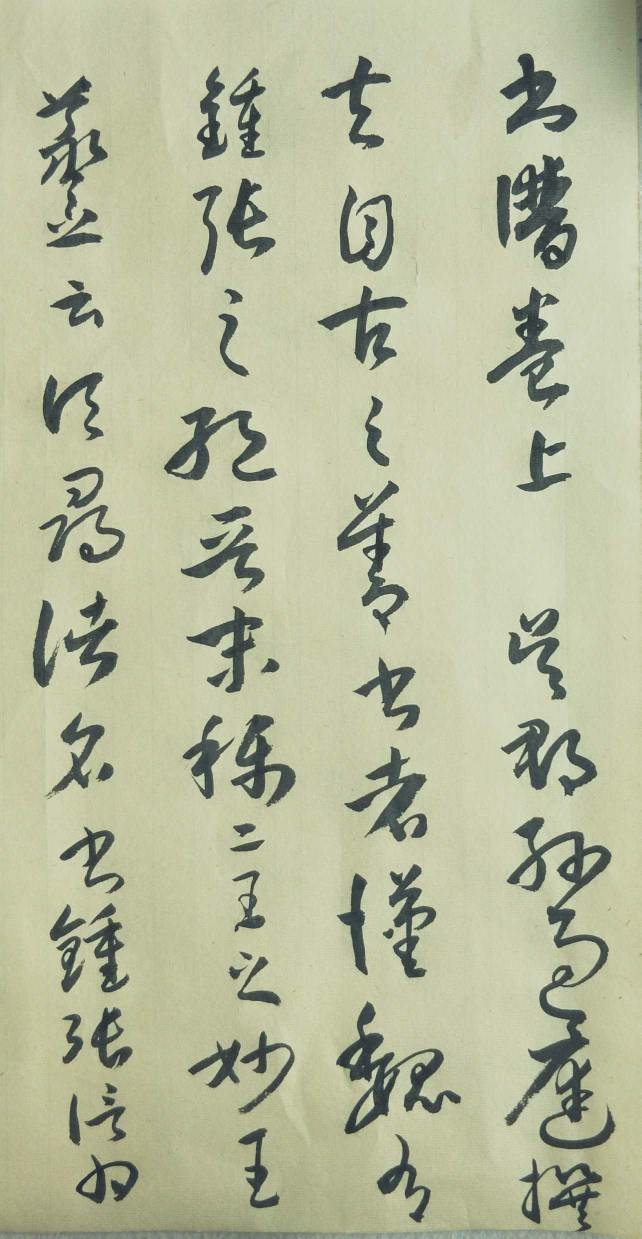 書譜卷上 吳郡孫過庭撰
夫自古之善書者漢魏有
鍾張之絕晉末稱二王之妙王
羲之云頃尋諸名書鍾張信為